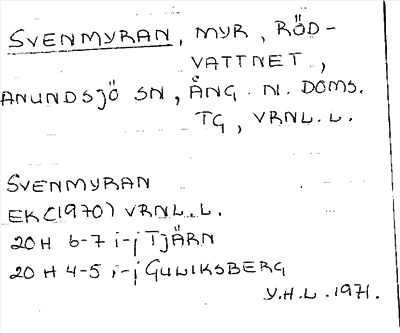 SVENMYRAN, MYR, RÖD-
VATTNET,
ANUNDSJÖ SN, ÅNG. N. DOMS.
TG, VRNL.L.
SVENMYRAN
EK(1970) VRNL.L.
20H 6-7 i-j TJÄRN
20H 4-5 i-j GULIKSBERG
Y.H.L. 1971.